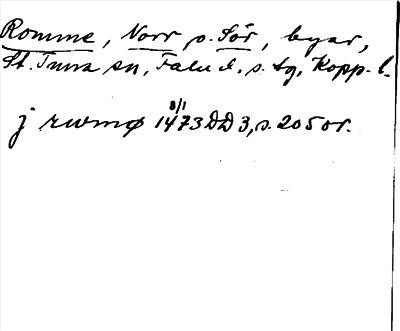 Romme, Norr o. Sör, byar,
St. Tuna sn, Falu d. s. tg, Kopp. l.
8/1
j rwmø 1473 DD 3, s. 205 or.